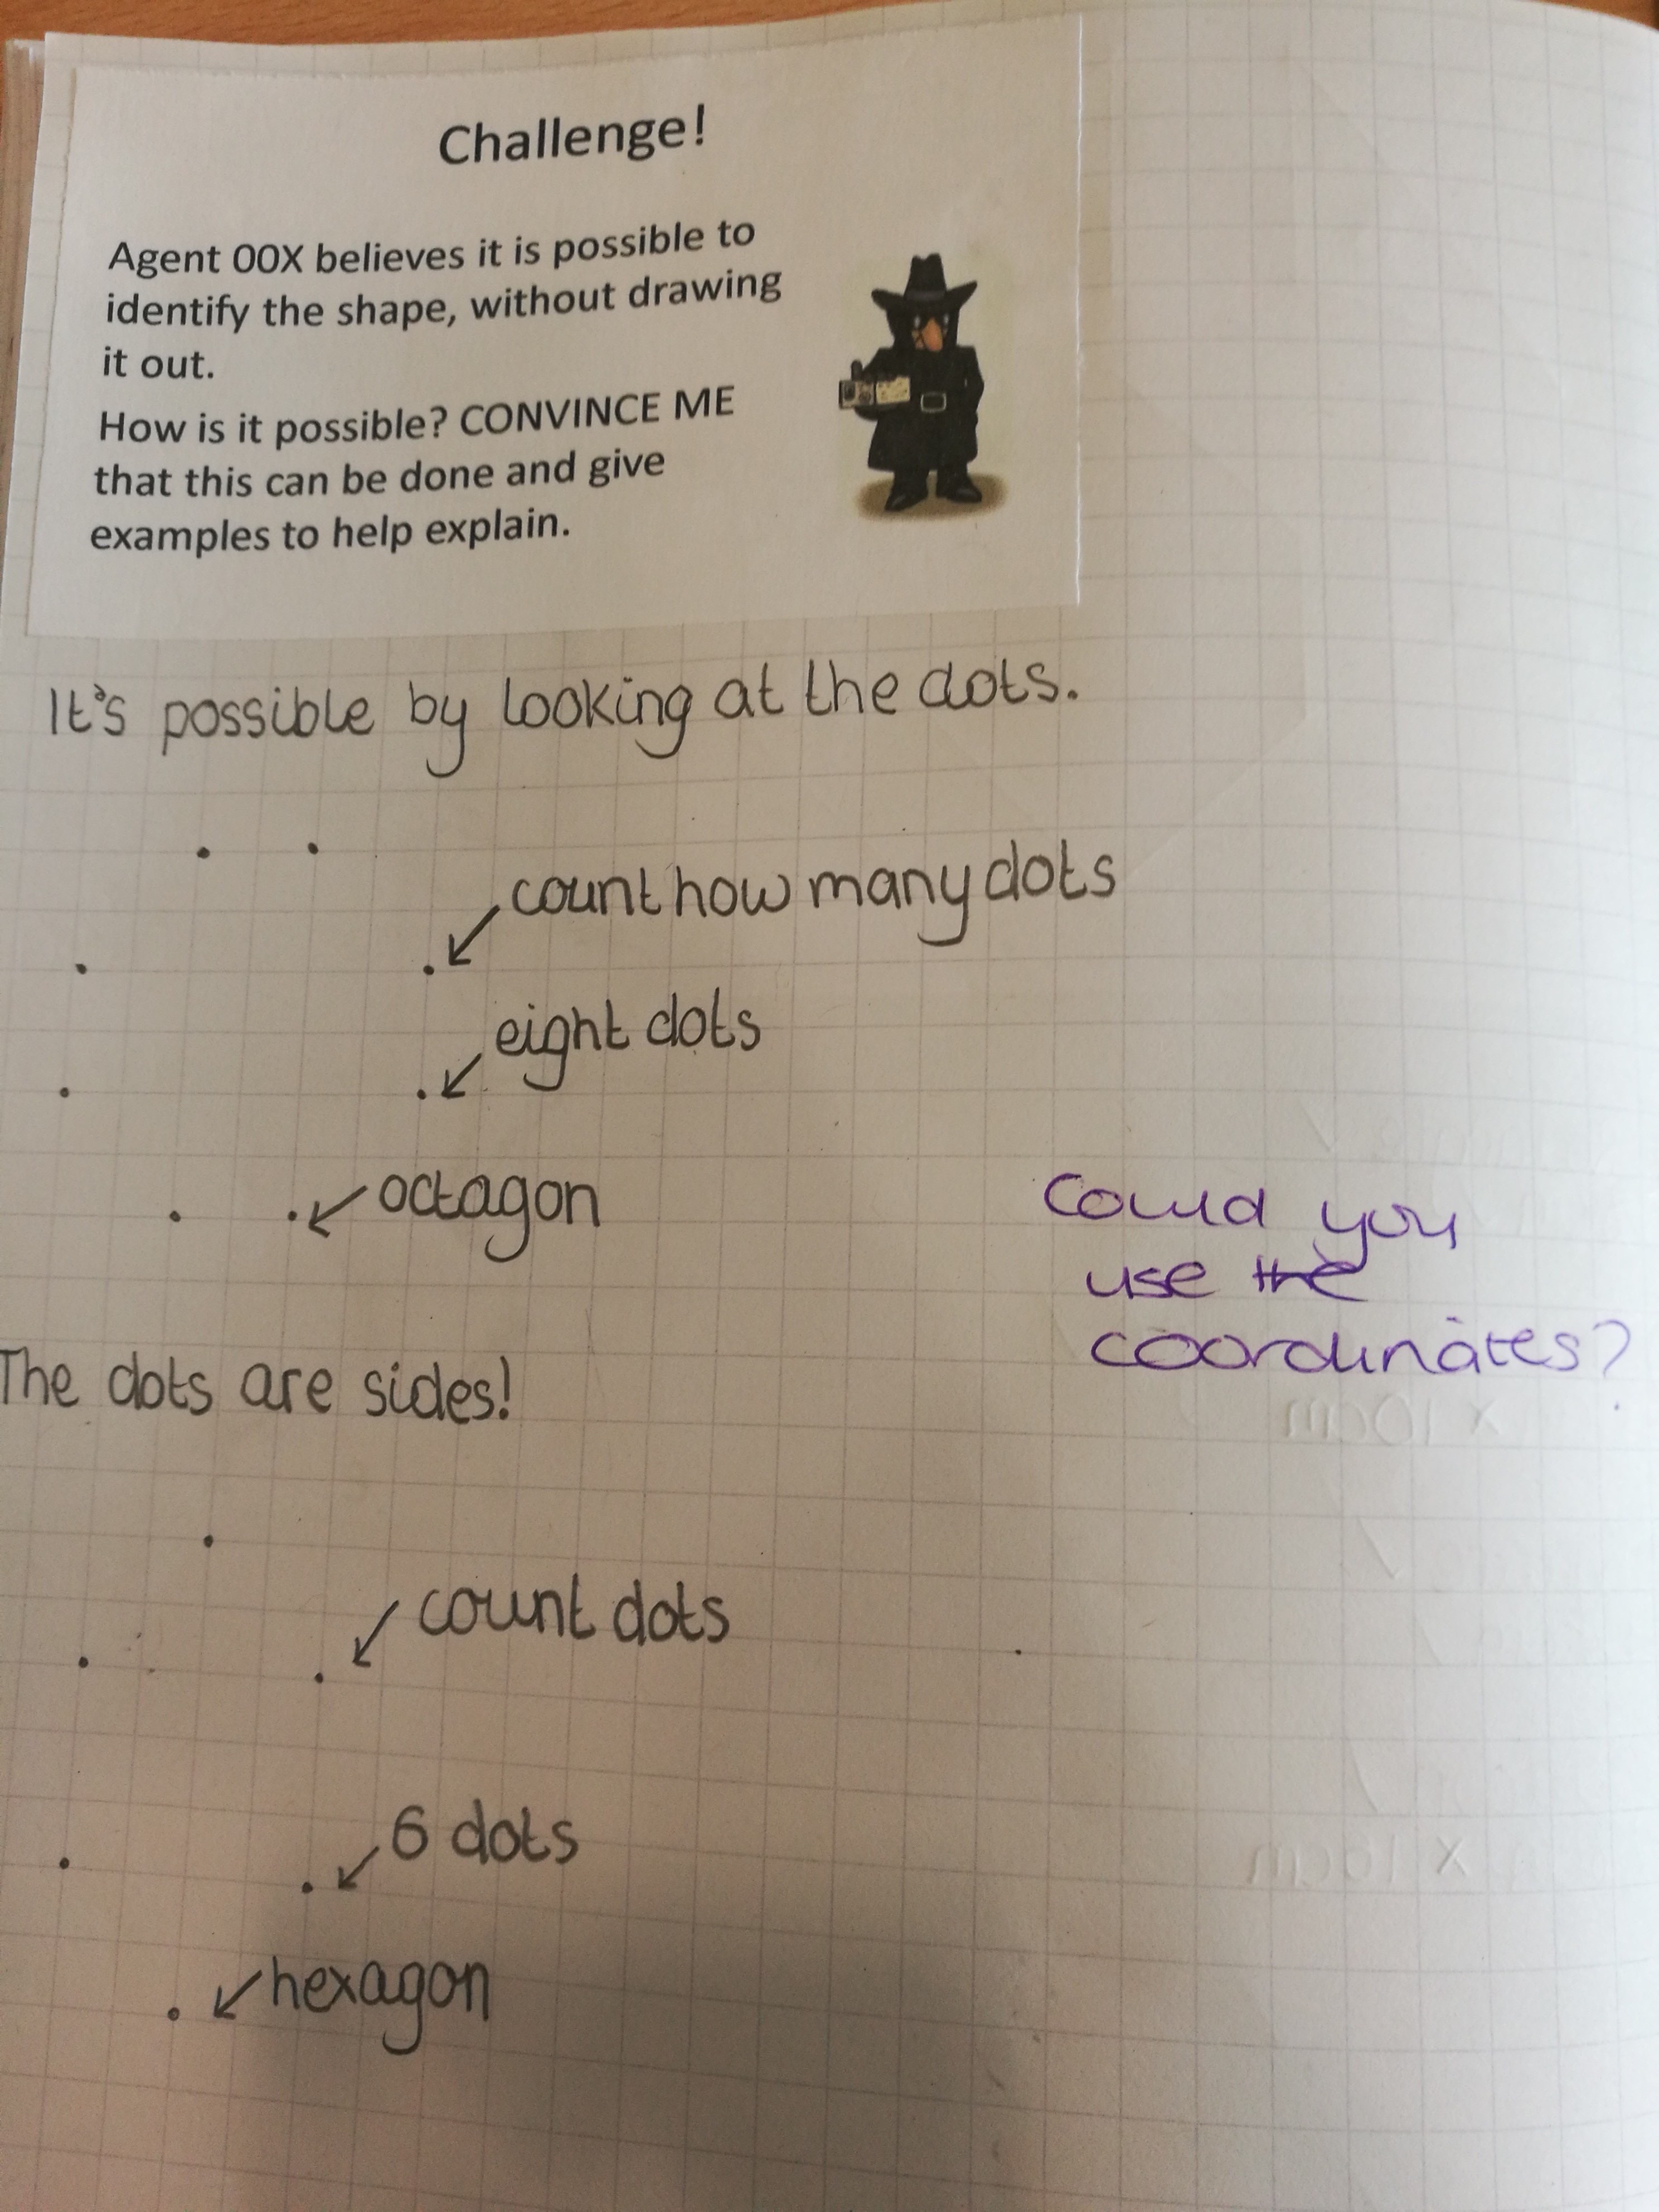 Challenge!
Agent 00X believes it is possible to
identify the shape, without drawing
it out.
How is it possible? CONVINCE ME
that this can be done and give
examples to help explain.
It's possible by looking at the dots.
count how many dots
eight dots
octagon
Could you
use the
coordinates?
The dots are sides!
count dots
6 dots
hexagon